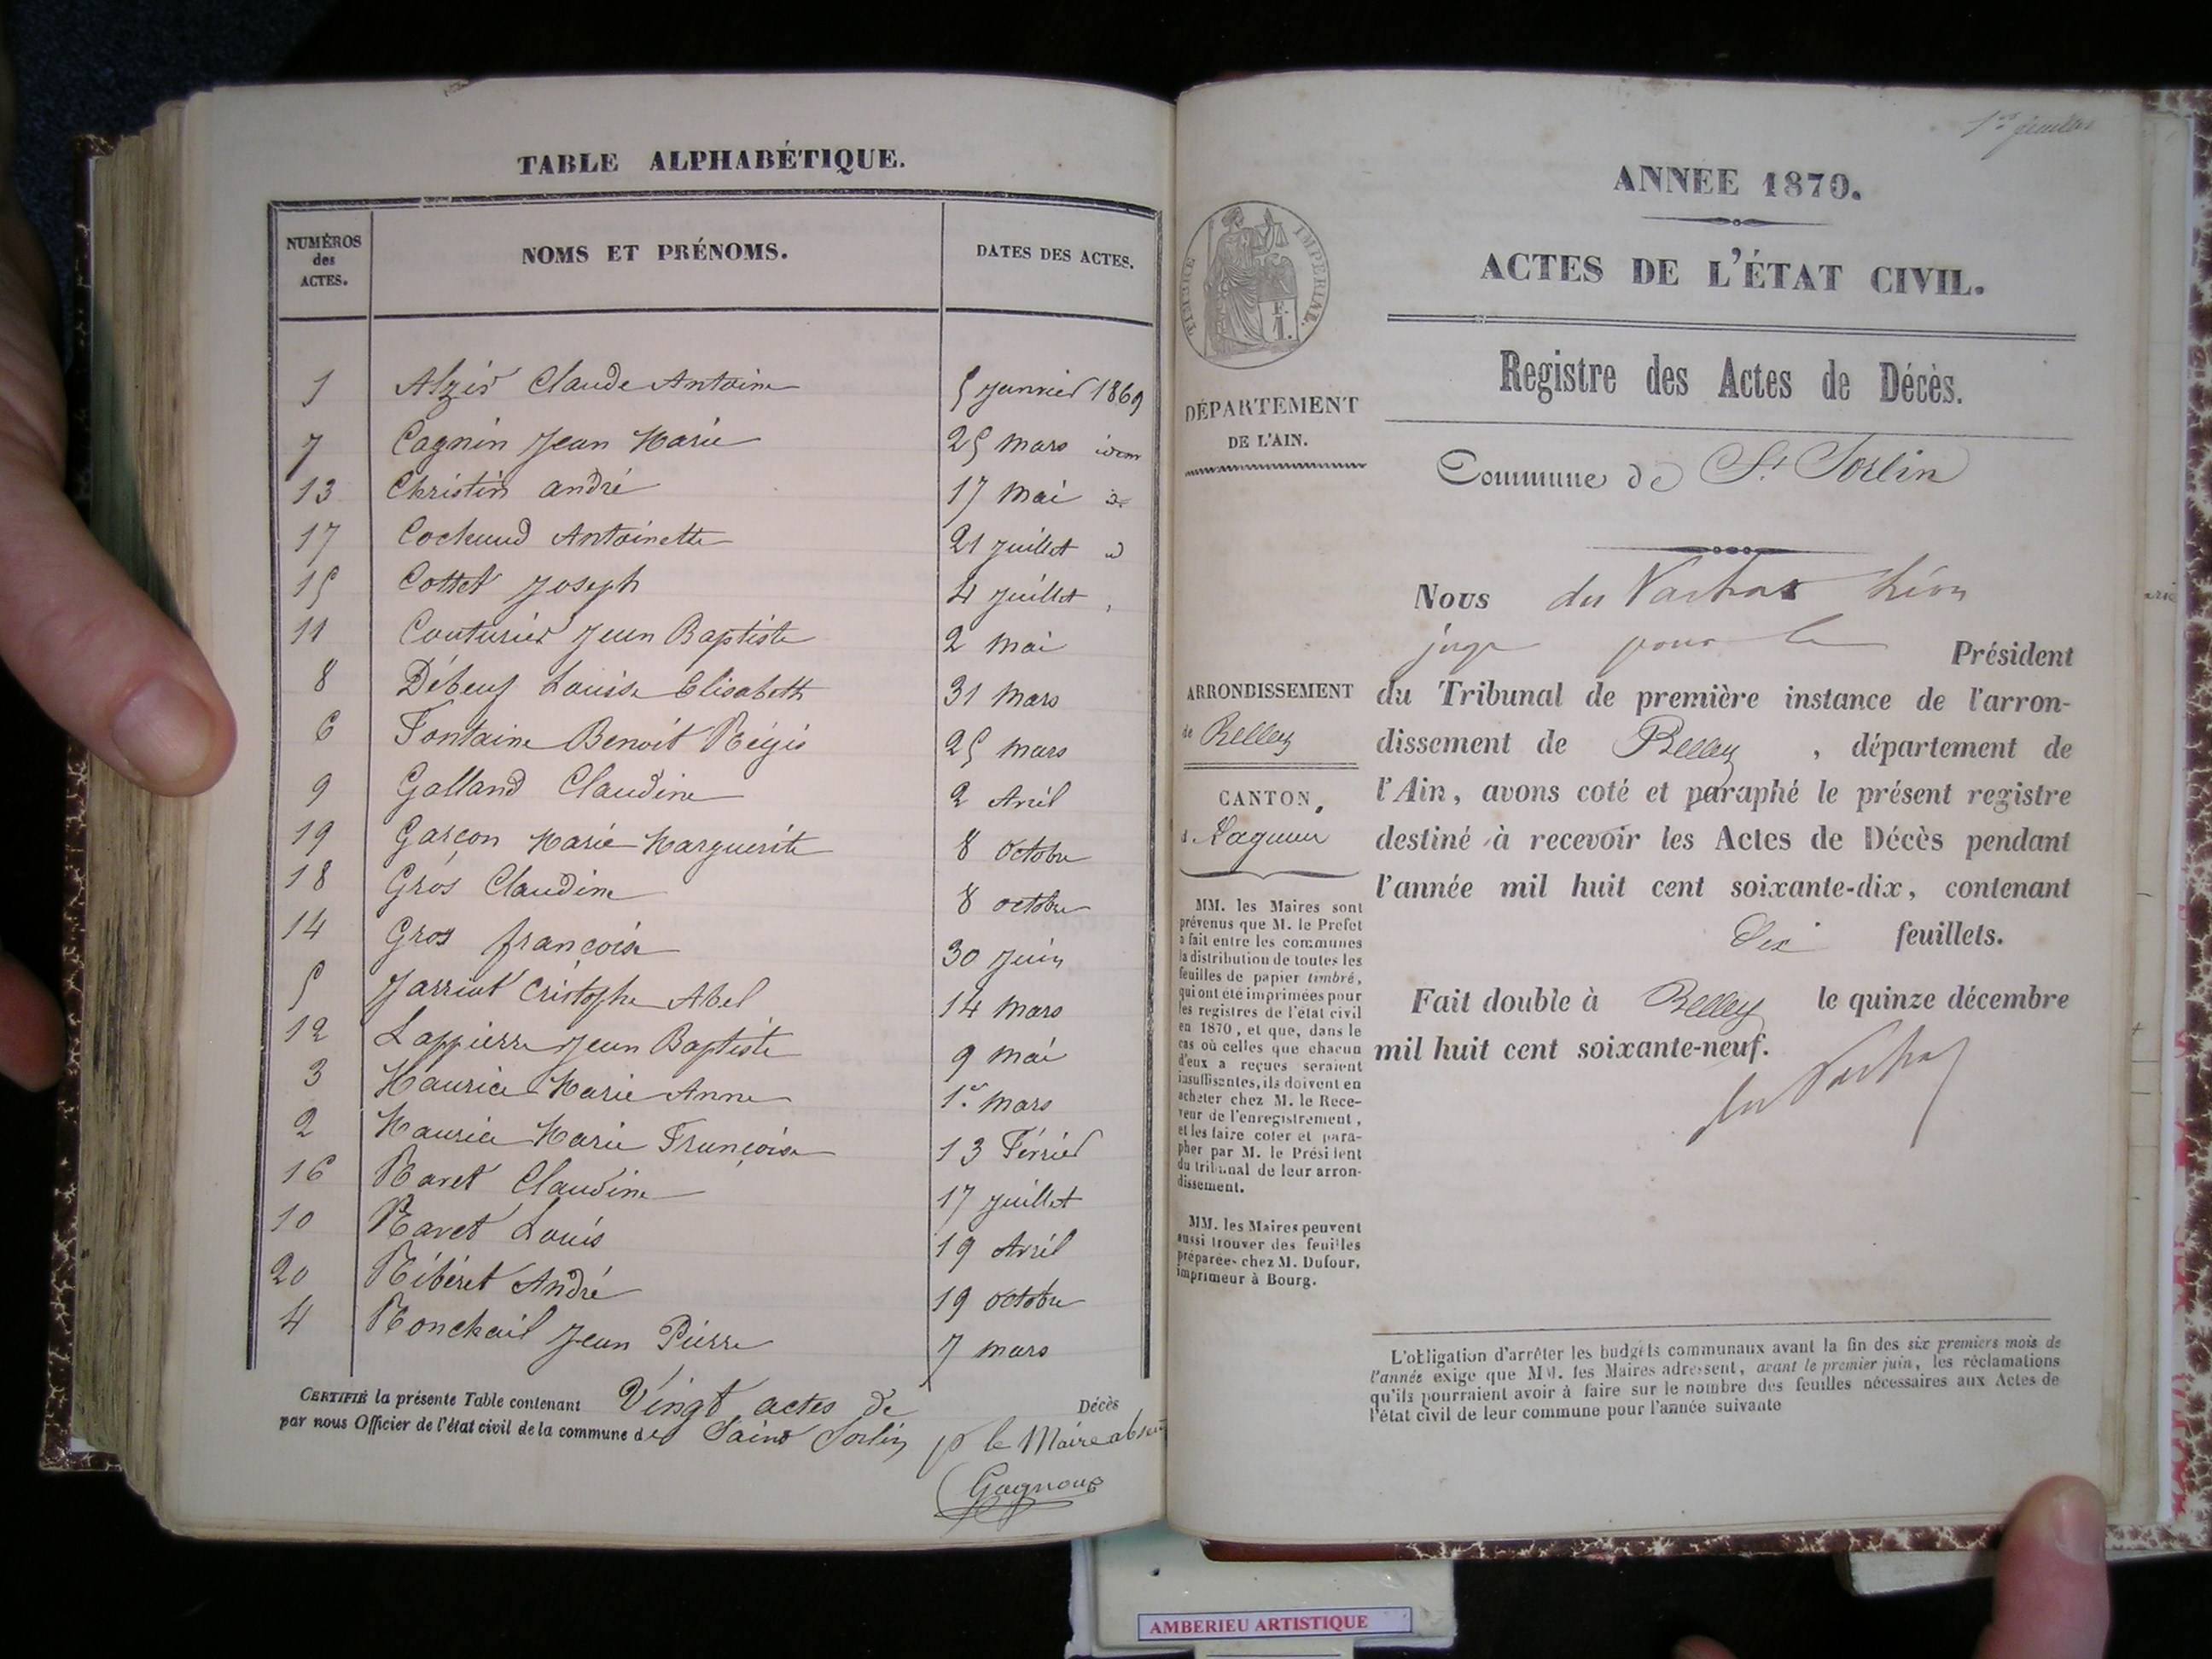 TABLE ALPHABÉTIQUE.
NUMÉROS des ACTES.
NOMS ET PRÉNOMS.
DATES DES ACTES.
1 Alzir Claude Antoine 5 janvier 1869
7 Cagnin Jean Marie 25 mars idem
13 Christin andré 17 mai
17 Antoinette 21 juillet
15 Cottet Joseph 4 juillet
11 Couturier Jean Baptiste 2 mai
8 Débeuf Louise Elisabeth 31 mars
6 Fontaine Benoit Régis 25 mars
9 Galland Claudine 2 Avril
19 Garçon Marie Marguerite 8 octobre
18 Gros Claudine 8 octobre
14 Gros françoise 30 juin
5 Jarriat Cristophe Abel 14 mars
12 Lappierre Jean Baptiste 9 mai
3 Maurice Marie Anne 1er mars
2 Maurice Marie Françoise 13 Février
16 Ravet Claudine 17 juillet
10 Ravet Louis 19 Avril
20 Ribéret André 19 octobre
4 Ronchail Jean Pierre 7 mars
CERTIFIÉ la présente Table contenant Vingt actes de Décès
par nous Officier de l'état civil de la commune de Saint Sorlin
p le Maire absent
Gagnoux
1er feuillet
ANNÉE 1870.
ACTES DE L'ÉTAT CIVIL.
TIMBRE IMPÉRIAL.
F.
1.
Registre des Actes de Décès.
DÉPARTEMENT
DE L'AIN.
Commune de St Sorlin
Nous du Vachat Léon
juge pour le Président
ARRONDISSEMENT
de Belley
du Tribunal de première instance de l'arron-
dissement de Belley, département de
l'Ain, avons coté et paraphé le présent registre
destiné à recevoir les Actes de Décès pendant
l'année mil huit cent soixante-dix, contenant
Dix feuillets.
Fait double à Belley le quinze décembre
mil huit cent soixante-neuf.
du Vachat
CANTON
d Lagnieu
MM. les Maires sont
prévenus que M. le Préfet
a fait entre les communes
la distribution de toutes les
feuilles de papier timbré,
qui ont été imprimées pour
les registres de l'état civil
en 1870, et que, dans le
cas où celles que chacun
d'eux a reçues seraient
insuffisantes, ils doivent en
acheter chez M. le Rece-
veur de l'enregistrement,
et les faire coter et para-
pher par M. le Président
du tribunal de leur arron-
dissement.
MM. les Maires peuvent
aussi trouver des feuilles
préparées chez M. Dufour,
imprimeur à Bourg.
L'obligation d'arrêter les budgets communaux avant la fin des six premiers mois de
l'année exige que MM. les Maires adressent, avant le premier juin, les réclamations
qu'ils pourraient avoir à faire sur le nombre des feuilles nécessaires aux Actes de
l'état civil de leur commune pour l'année suivante
AMBERIEU ARTISTIQUE